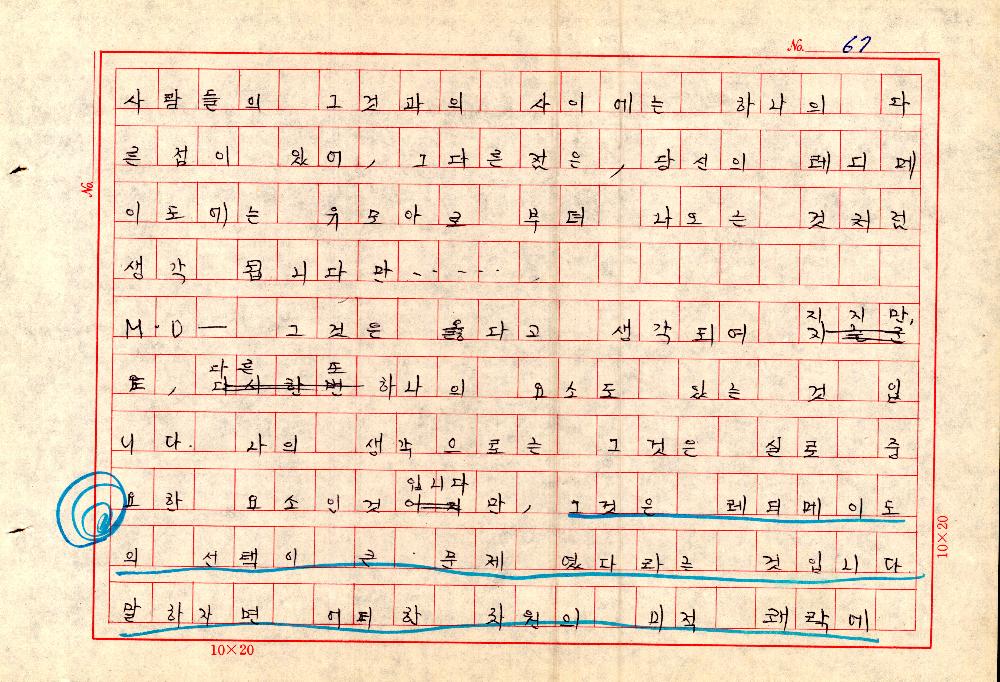 No. 67
사람들의 그것과의 사이에는 하나의 다
른 점이 있어, 그 다른 것은, 당신의 레디메
이드에는 유모아로 부터 나오는 것처럼
생각 됩니다만.....
M·D— 그것은 옳다고 생각되어 지지만,
또, 다른 또 하나의 요소도 있는 것 입
니다. 나의 생각으로는 그것은 실로 중
요한 요소인 것입니다만, 그것은 레디메이드
의 선택이 큰 문제였다라는 것입니다
말하자면 어떠한 차원의 미적 쾌락에
No.
10×20
10×20